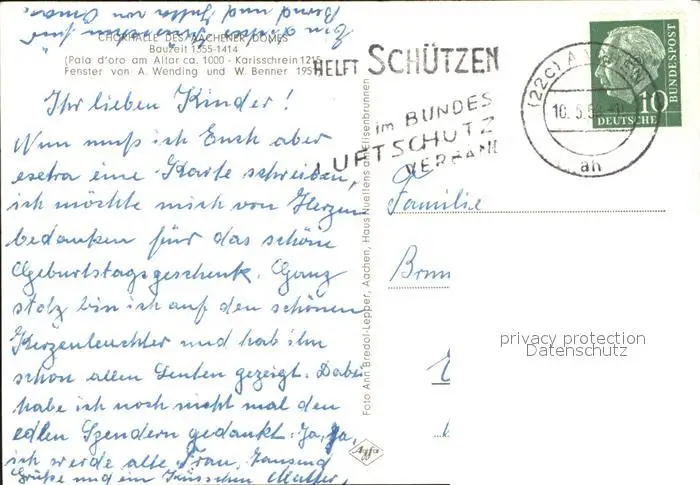 Ein dickes Küsschen für
Bernd und Jutta von Oma.
CHORHALLE DES AACHENER DOMES
Bauzeit 1355-1414
(Pala d'oro am Altar ca. 1000 - Karlsschrein 1215
Fenster von A. Wending und W. Benner 1951
Ihr lieben Kinder!
Nun muß ich Euch aber
extra eine Karte schreiben,
ich möchte mich von Herzen
bedanken für das schöne
Geburtstagsgeschenk. Ganz
stolz bin ich auf den schönen
Kerzenleuchter und hab ihn
schon allen Leuten gezeigt. Dabei
habe ich noch nicht mal den
edlen Spendern gedankt. Ja, Ja,
ich werde alte Frau, Tausend
Grüße und ein Küsschen Mutter,
Foto Ann Bredol-Lepper, Aachen, Haus Nuellens am Elisenbrunnen
Agfa
HELFT SCHÜTZEN
im BUNDES
LUFTSCHUTZ
VERBAND
(22c) AACHEN
10.5.
ah
10
DEUTSCHE BUNDESPOST
Familie
privacy protection
Datenschutz